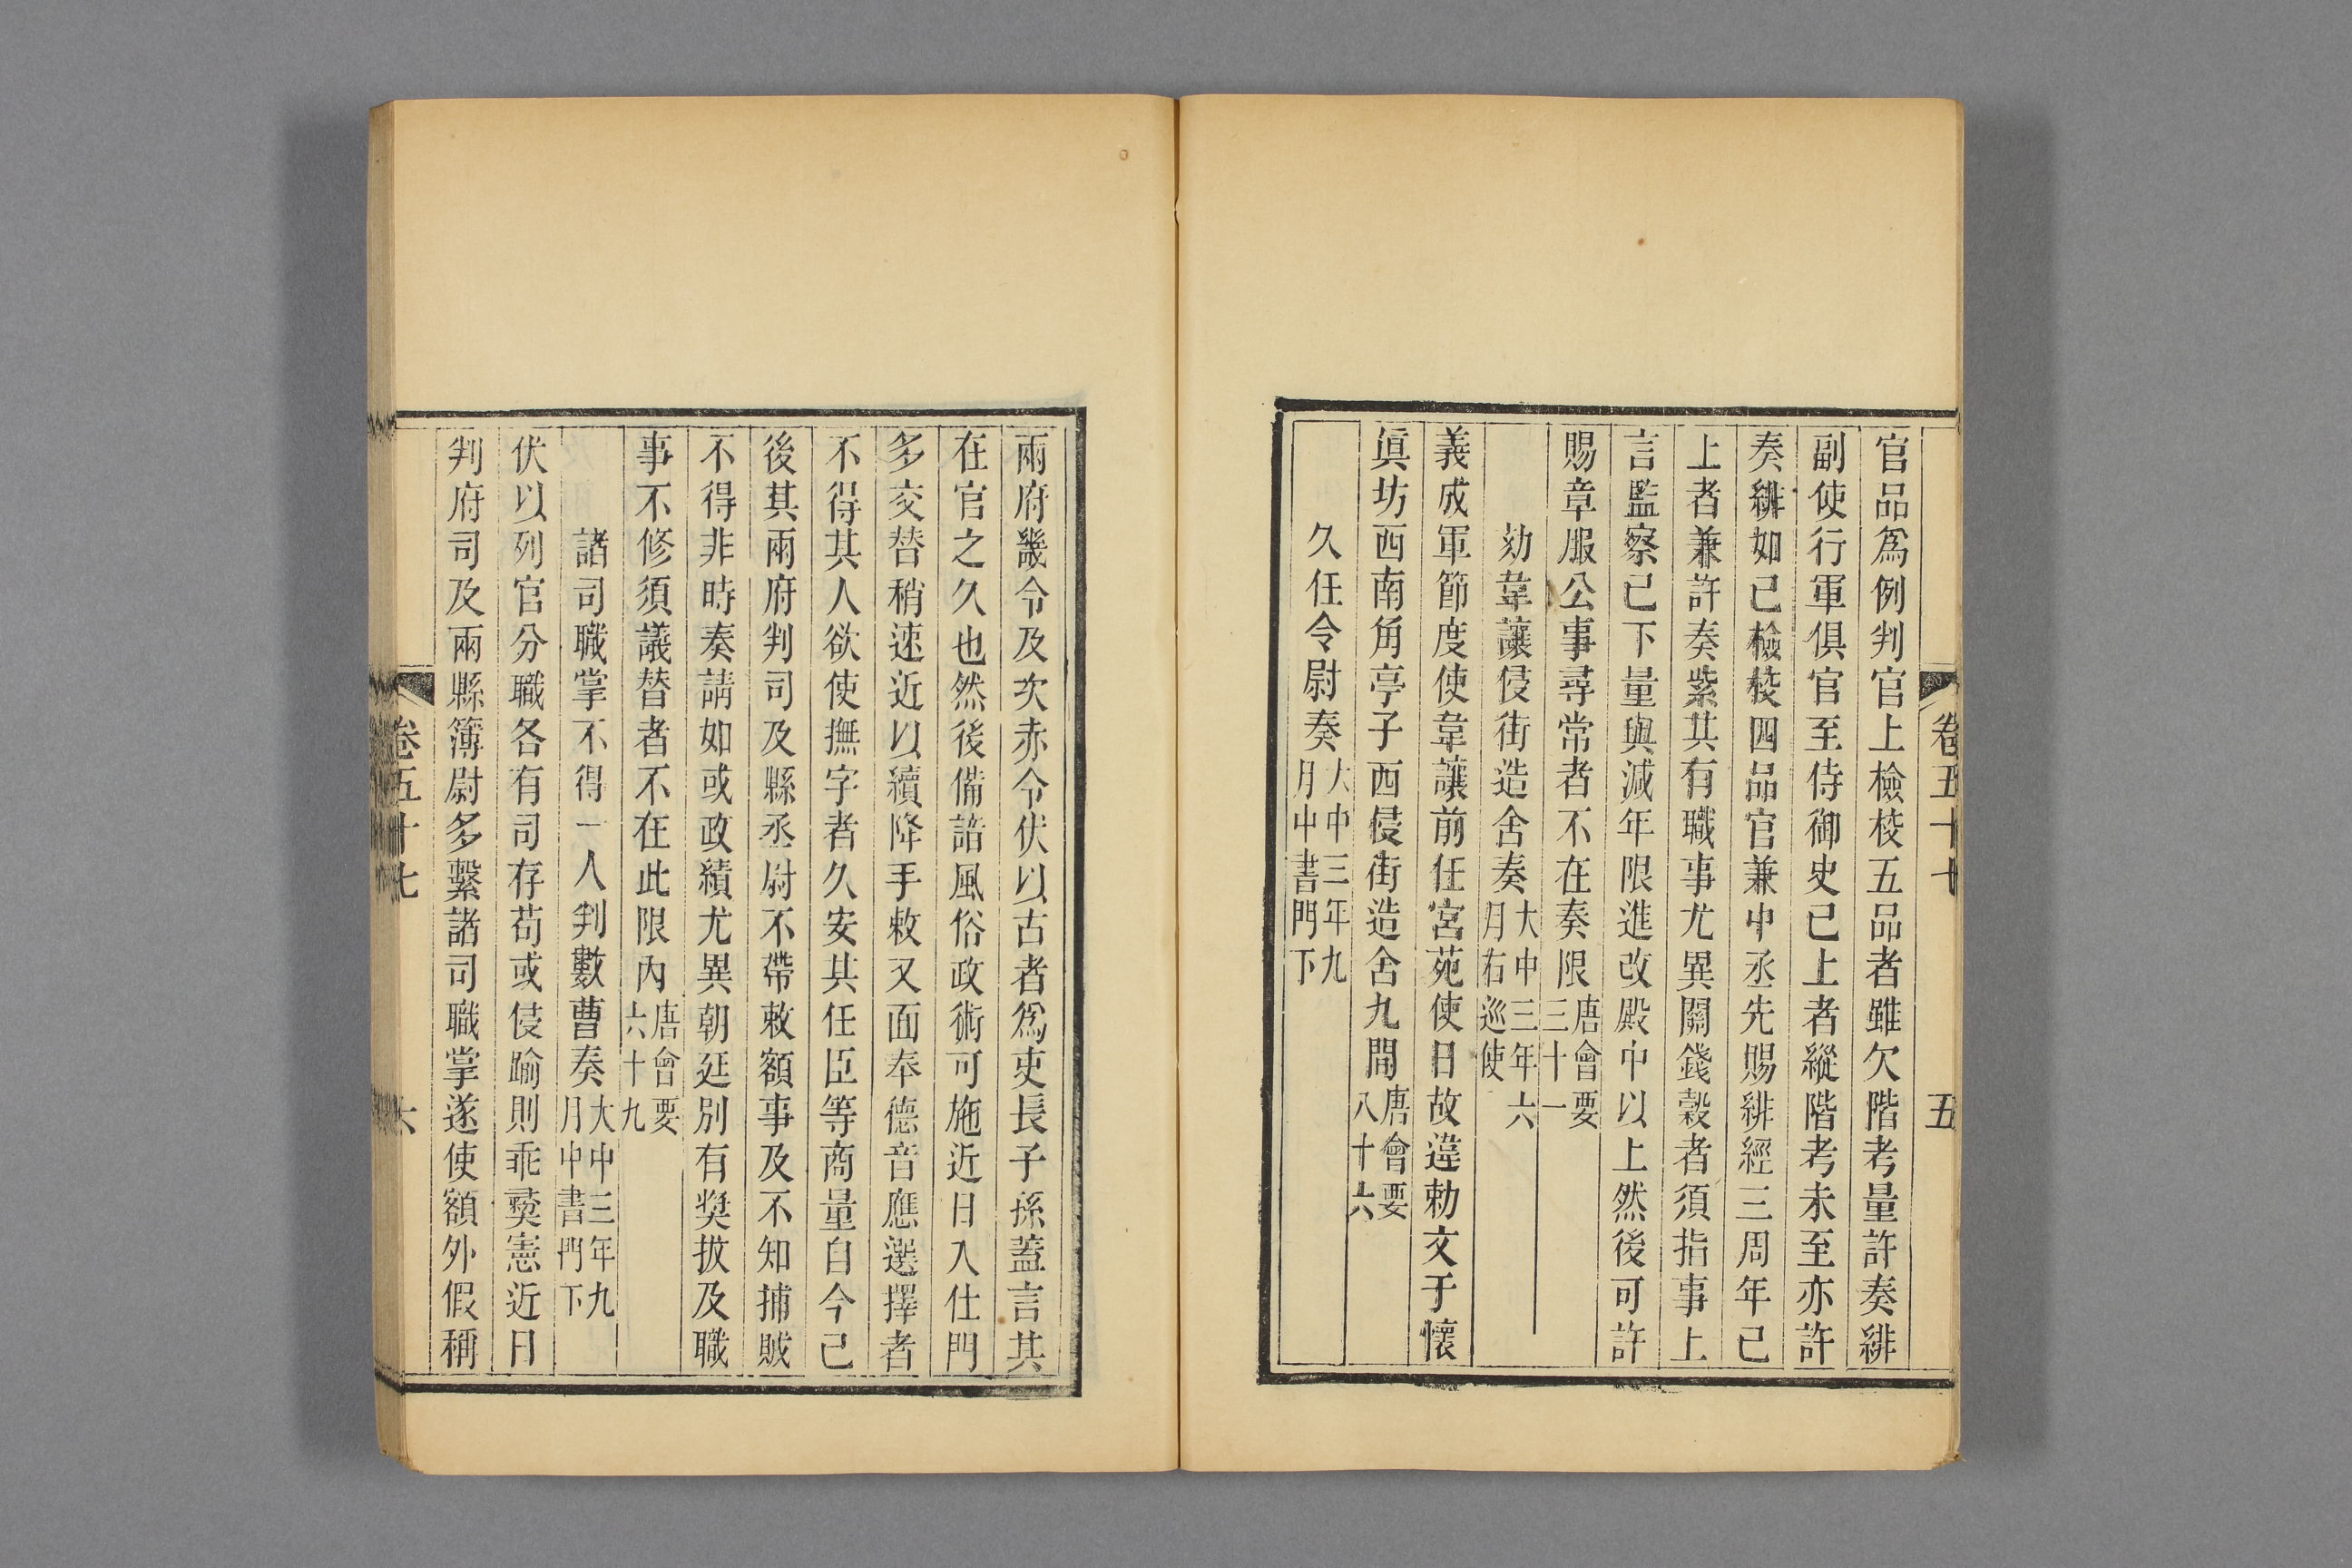 卷五十七
五
官品爲例判官上檢校五品者雖欠階考量許奏緋
副使行軍俱官至侍御史已上者縱階考未至亦許
奏緋如已檢校四品官兼中丞先賜緋經三周年已
上者兼許奏紫其有職事尤異關錢穀者須指事上
言監察已下量與減年限進改殿中以上然後可許
賜章服公事尋常者不在奏限唐會要三十一
劾韋讓侵街造舍奏大中三年六月右巡使
義成軍節度使韋讓前任宮苑使日故違勅文于懷
眞坊西南角亭子西侵街造舍九間唐會要八十六
久任令尉奏大中三年九月中書門下
兩府畿令及次赤令伏以古者爲吏長子孫蓋言其
在官之久也然後備諳風俗政術可施近日入仕門
多交替稍速近以續降手敕又面奉德音應選擇者
不得其人欲使撫字者久安其任臣等商量自今已
後其兩府判司及縣丞尉不帶敕額事及不知捕賊
不得非時奏請如或政績尤異朝廷別有獎拔及職
事不修須議替者不在此限內唐會要六十九
諸司職掌不得一人判數曹奏大中三年九月中書門下
伏以列官分職各有司存苟或侵踰則乖彝憲近日
判府司及兩縣簿尉多繫諸司職掌遂使額外假稱
卷五十七
六